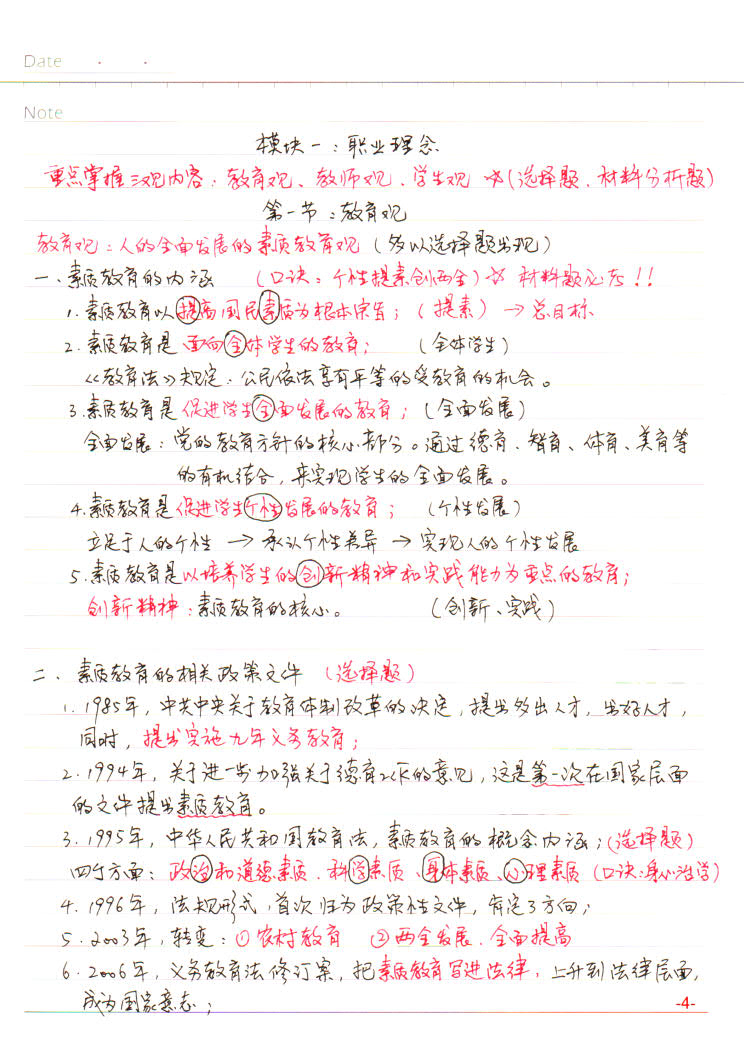 Date · ·
Note
模块一:职业理念
重点掌握三观内容:教育观、教师观、学生观 ☆(选择题、材料分析题)
第一节:教育观
教育观:人的全面发展的素质教育观(多以选择题出现)
一、素质教育的内涵 (口诀:个性提素创两全)☆ 材料题必考!!
1.素质教育以提高国民素质为根本宗旨;(提素)→总目标
2.素质教育是面向全体学生的教育; (全体学生)
《教育法》规定:公民依法享有平等的受教育的机会。
3.素质教育是促进学生全面发展的教育;(全面发展)
全面发展:党的教育方针的核心部分。通过德育、智育、体育、美育等
的有机结合,来实现学生的全面发展。
4.素质教育是促进学生个性发展的教育; (个性发展)
立足于人的个性 → 承认个性差异 → 实现人的个性发展
5.素质教育是以培养学生的创新精神和实践能力为重点的教育;
创新精神:素质教育的核心。 (创新、实践)
二、素质教育的相关政策文件 (选择题)
1.1985年,中共中央关于教育体制改革的决定,提出多出人才,出好人才,
同时,提出实施九年义务教育;
2.1994年,关于进一步加强关于德育工作的意见,这是第一次在国家层面
的文件提出素质教育。
3.1995年,中华人民共和国教育法,素质教育的概念内涵;(选择题)
四个方面:政治和道德素质、科学素质、身体素质、心理素质(口诀:身心治学)
4.1996年,法规形式,首次归为政策性文件,肯定了方向;
5.2003年,转变:①农村教育 ②两全发展、全面提高
6.2006年,义务教育法修订案,把素质教育写进法律,上升到法律层面,
成为国家意志;
-4-